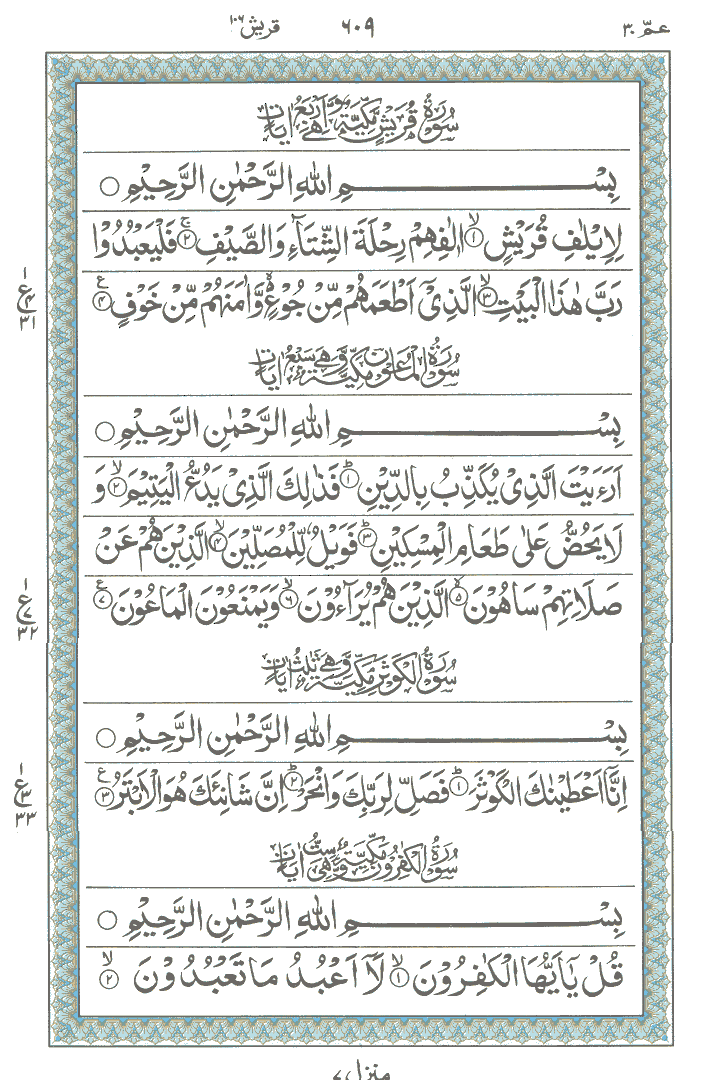 عمّ ٣٠ ٦٠٩ قريش ١٠٦
سُوْرَةُ قُرَيْشٍ مَّكِّيَّةٌ وَّهِيَ اَرْبَعُ اٰيَاتٍ
بِسْمِ اللّٰهِ الرَّحْمٰنِ الرَّحِيْمِ ○
لِاِيْلٰفِ قُرَيْشٍ ۙ﴿١﴾ اٖلٰفِهِمْ رِحْلَةَ الشِّتَآءِ وَالصَّيْفِ ۚ﴿٢﴾ فَلْيَعْبُدُوْا
رَبَّ هٰذَا الْبَيْتِ ۙ﴿٣﴾ الَّذِيْٓ اَطْعَمَهُمْ مِّنْ جُوْعٍ ۙ وَّاٰمَنَهُمْ مِّنْ خَوْفٍ ﴿٤﴾
١ ع ٤ ٣١
سُوْرَةُ الْمَاعُوْنِ مَكِّيَّةٌ وَّهِيَ سَبْعُ اٰيَاتٍ
بِسْمِ اللّٰهِ الرَّحْمٰنِ الرَّحِيْمِ ○
اَرَءَيْتَ الَّذِيْ يُكَذِّبُ بِالدِّيْنِ ؕ﴿١﴾ فَذٰلِكَ الَّذِيْ يَدُعُّ الْيَتِيْمَ ۙ﴿٢﴾ وَ
لَا يَحُضُّ عَلٰى طَعَامِ الْمِسْكِيْنِ ؕ﴿٣﴾ فَوَيْلٌ لِّلْمُصَلِّيْنَ ۙ﴿٤﴾ الَّذِيْنَ هُمْ عَنْ
صَلَاتِهِمْ سَاهُوْنَ ۙ﴿٥﴾ الَّذِيْنَ هُمْ يُرَآءُوْنَ ۙ﴿٦﴾ وَيَمْنَعُوْنَ الْمَاعُوْنَ ﴿٧﴾
١ ع ٧ ٣٢
سُوْرَةُ الْكَوْثَرِ مَكِّيَّةٌ وَّهِيَ ثَلٰثُ اٰيَاتٍ
بِسْمِ اللّٰهِ الرَّحْمٰنِ الرَّحِيْمِ ○
اِنَّآ اَعْطَيْنٰكَ الْكَوْثَرَ ؕ﴿١﴾ فَصَلِّ لِرَبِّكَ وَانْحَرْ ؕ﴿٢﴾ اِنَّ شَانِئَكَ هُوَ الْاَبْتَرُ ﴿٣﴾
١ ع ٣ ٣٣
سُوْرَةُ الْكٰفِرُوْنَ مَكِّيَّةٌ وَّهِيَ سِتُّ اٰيَاتٍ
بِسْمِ اللّٰهِ الرَّحْمٰنِ الرَّحِيْمِ ○
قُلْ يٰٓاَيُّهَا الْكٰفِرُوْنَ ۙ﴿١﴾ لَآ اَعْبُدُ مَا تَعْبُدُوْنَ ۙ﴿٢﴾
منزل ٧